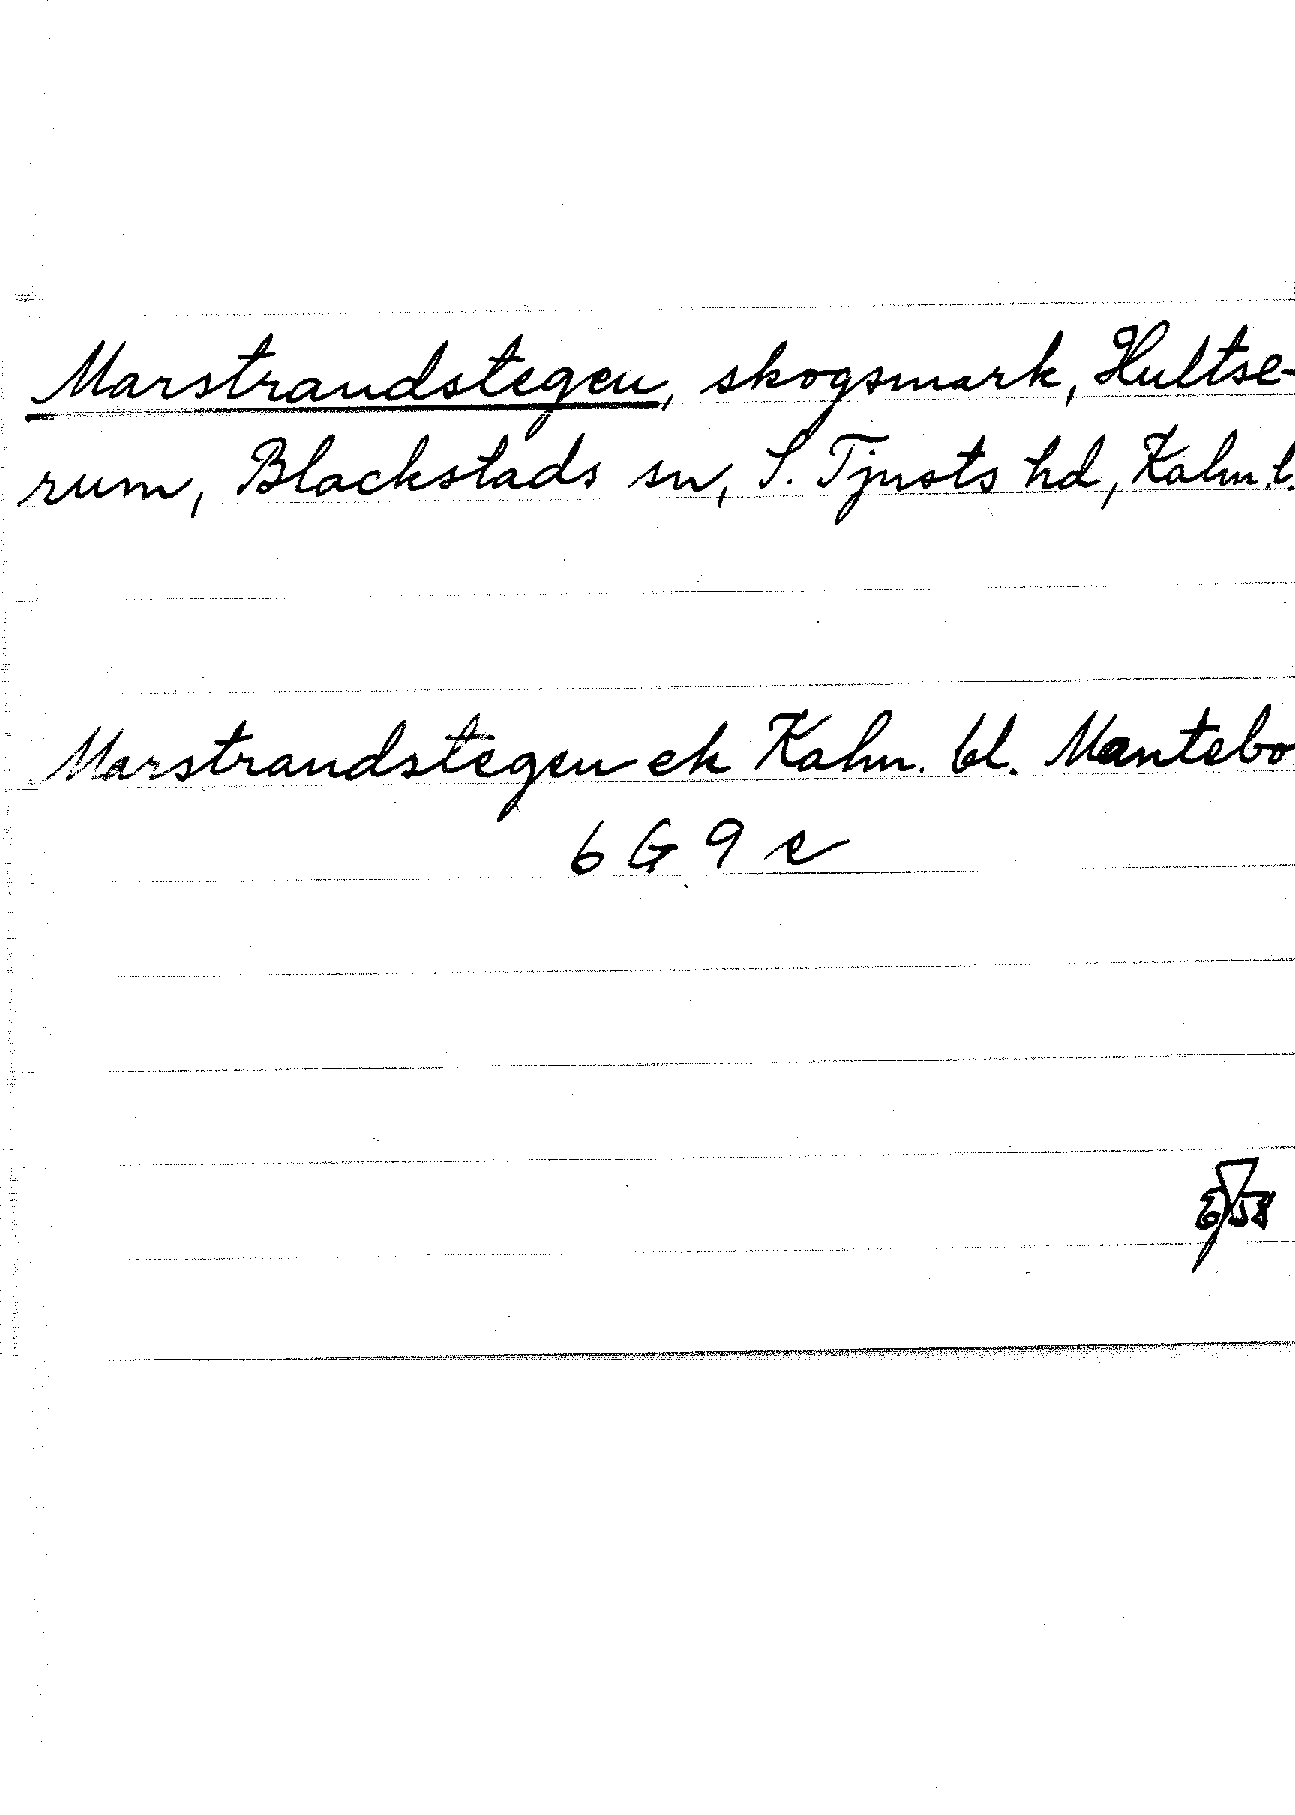 Marstrandstegen, skogsmark, Hultse-
rum, Blackstads sn, S. Tjusts hd, Kalm. l.
Marstrandstegen ek Kalm. bl. Mantebo
6 G 9 e